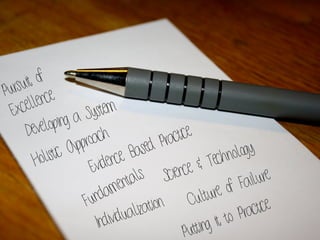 Pursuit of
Excellence
Developing a System
Holistic Approach
Evidence Based Practice
Fundamentals
Science & Technology
Individualization
Culture of Failure
Putting it to Practice